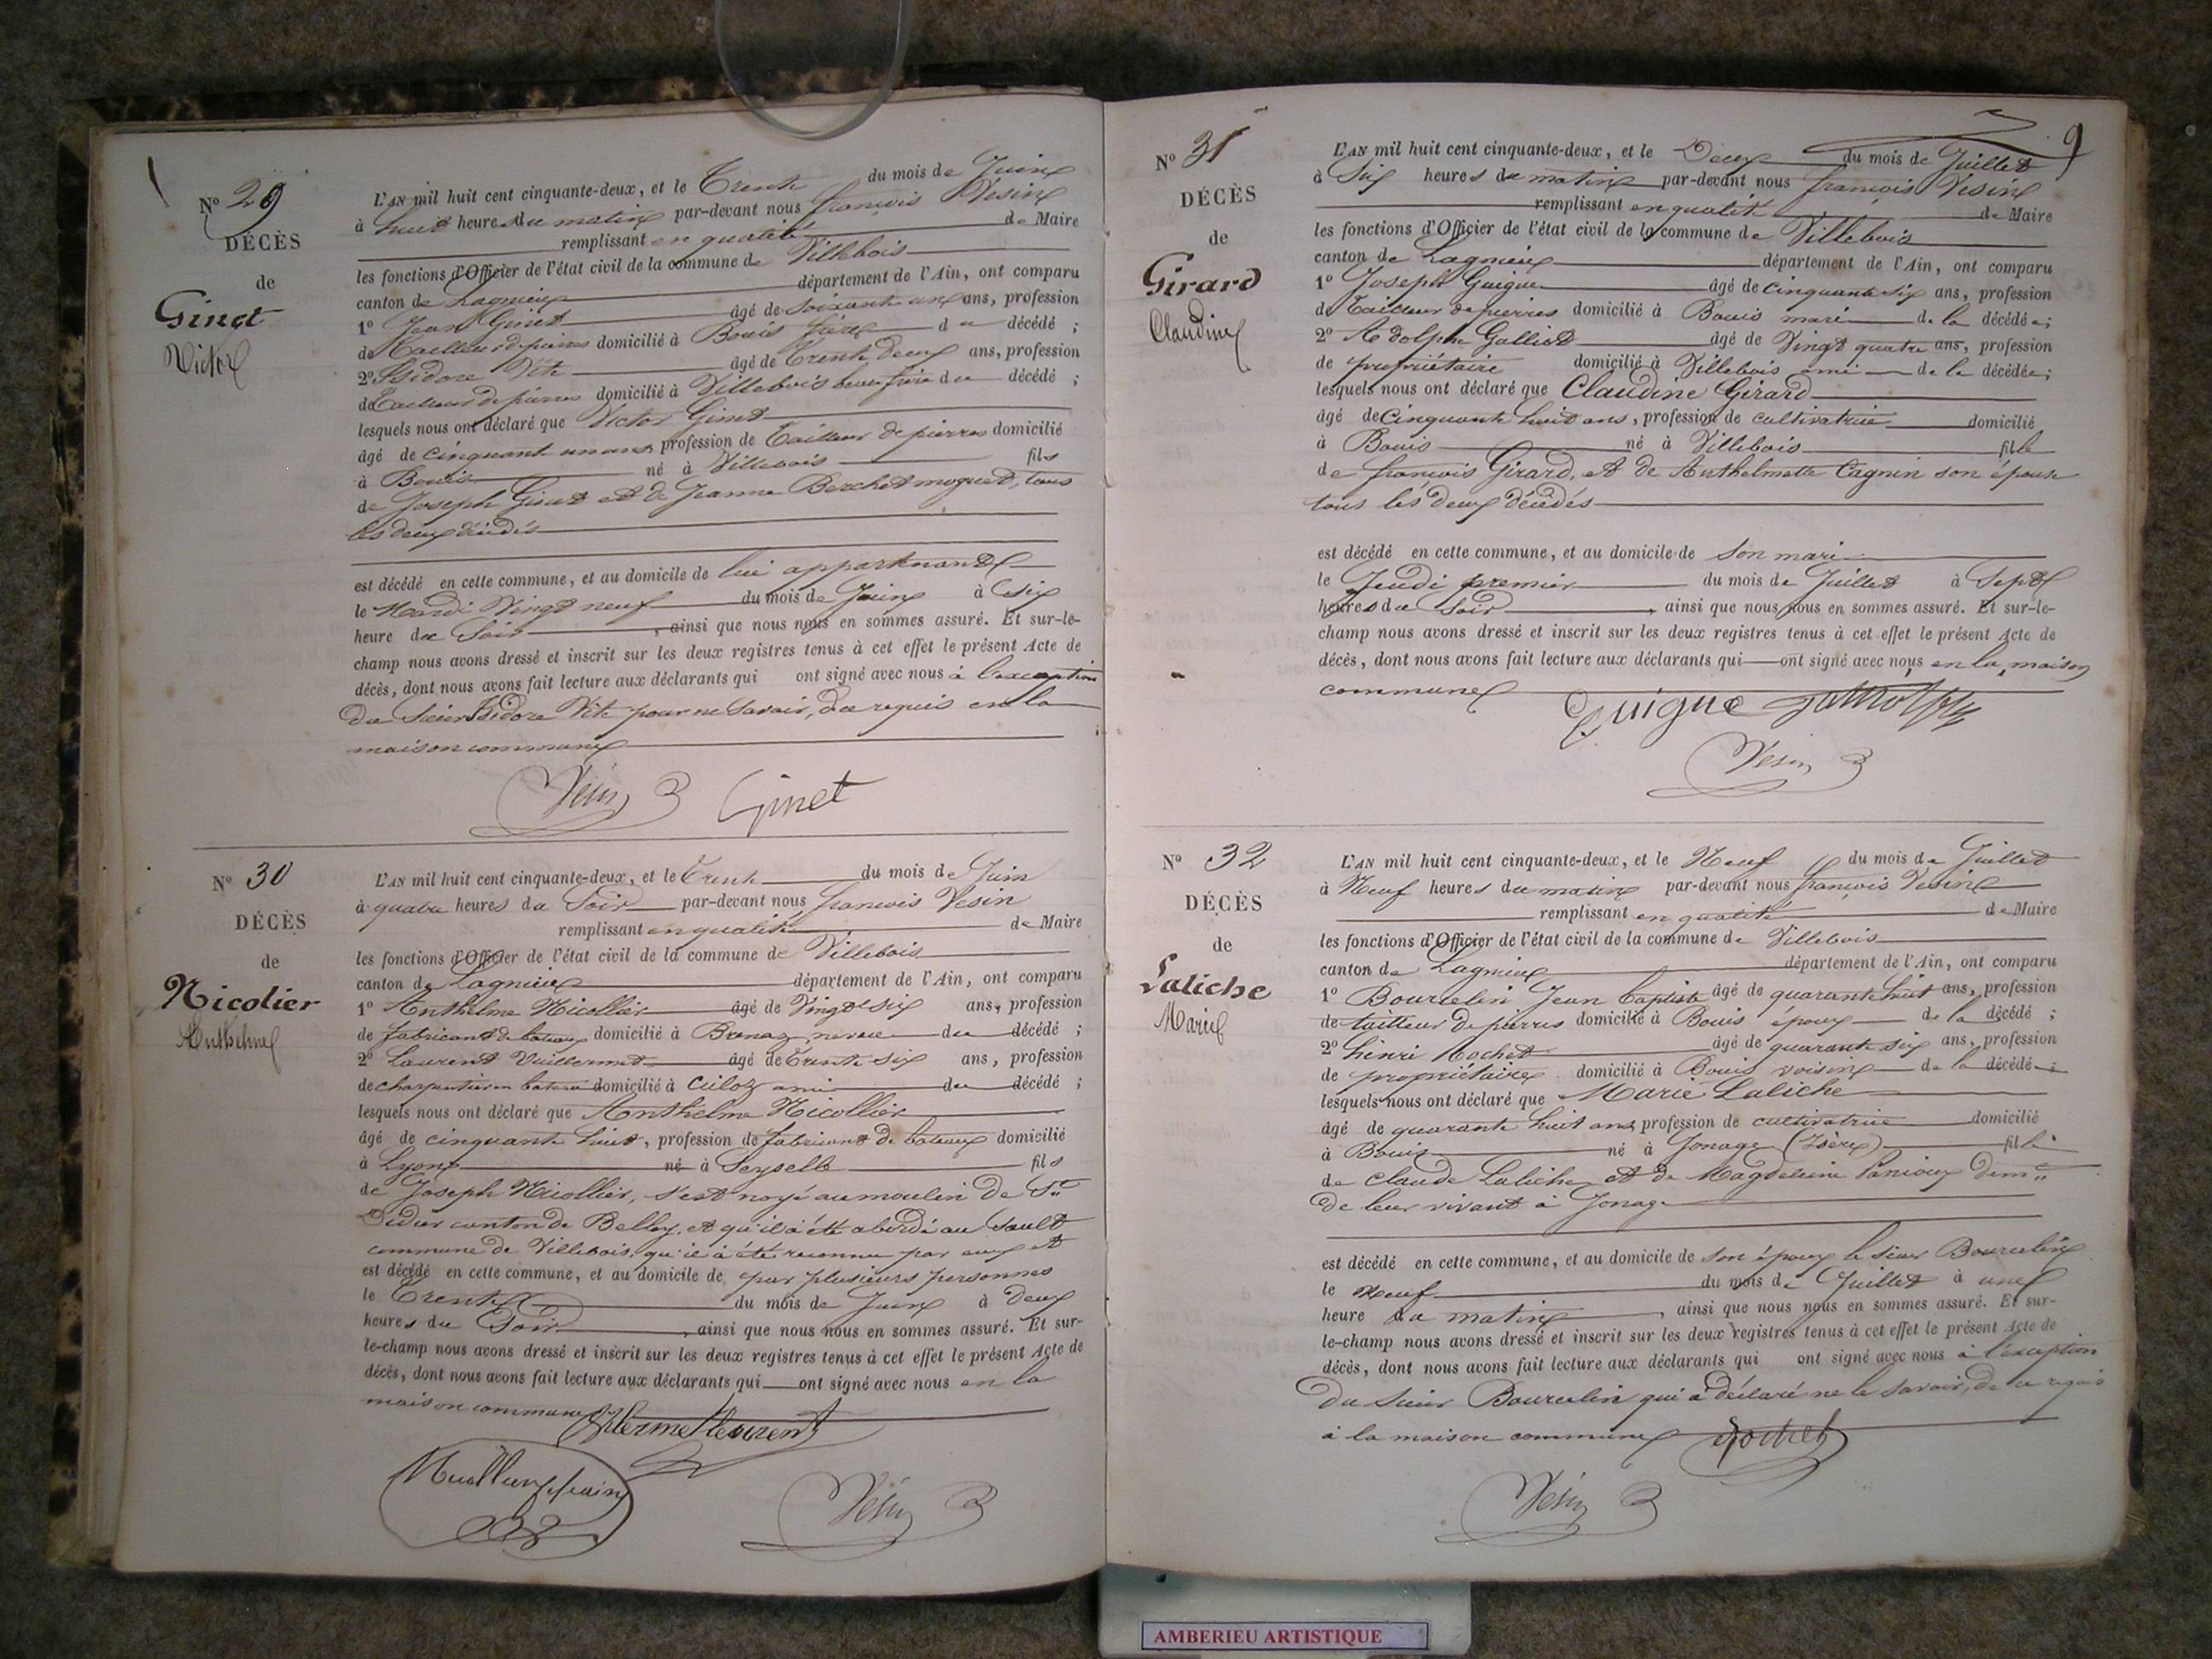 Nº 29
DÉCÈS
de
Ginet
Victor
L'AN mil huit cent cinquante-deux, et le Trente du mois de Juin
à huit heures du matin par-devant nous françois Vesin
remplissant en qualité de Maire
les fonctions d'Officier de l'état civil de la commune de Villebois
canton de Lagnieu département de l'Ain, ont comparu
1º Jean Ginet âgé de soixante un ans, profession
de Tailleur de pierres domicilié à Bouis frère du décédé ;
2º Isidore Vite âgé de Trente deux ans, profession
de Tailleur de pierres domicilié à Villebois beau frère du décédé ;
lesquels nous ont déclaré que Victor Ginet
âgé de cinquant un ans, profession de Tailleur de pierres domicilié
à Bouis né à Villebois fils
de Joseph Ginet et de Jeanne Berchet moguet, tous
les deux décédés
est décédé en cette commune, et au domicile de lui appartenant
le Mardi Vingt neuf du mois de Juin à six
heure du Soir, ainsi que nous nous en sommes assuré. Et sur-le-
champ nous avons dressé et inscrit sur les deux registres tenus à cet effet le présent Acte de
décès, dont nous avons fait lecture aux déclarants qui ont signé avec nous à l'exception
du Sieur Isidore Vite pour ne savoir, de ce requis en la
maison commune
Vésin Ginet
Nº 30
DÉCÈS
de
Nicolier
Anthelme
L'AN mil huit cent cinquante-deux, et le Trente du mois de Juin
à quatre heures du Soir par-devant nous françois Vesin
remplissant en qualité de Maire
les fonctions d'Officier de l'état civil de la commune de Villebois
canton de Lagnieu département de l'Ain, ont comparu
1º Anthelme Nicollier âgé de Vingt six ans, profession
de fabricant de bateaux domicilié à neveu du décédé ;
2º Laurent Vuillermet âgé de Trente six ans, profession
de charpentier en bateau domicilié à Culoz ami du décédé ;
lesquels nous ont déclaré que Anthelme Nicollier
âgé de cinquante huit, profession de fabricant de bateaux domicilié
à Lyon né à Seyselle fils
de Joseph Nicollier, s'est noyé au moulin de St
Didier canton de Belley, et qu'il a été abordé au Sault
commune de Villebois, qu'il a été reconnu par eux et
est décédé en cette commune, et au domicile de par plusieurs personnes
le Trente du mois de Juin à deux
heures du Soir, ainsi que nous nous en sommes assuré. Et sur-
le-champ nous avons dressé et inscrit sur les deux registres tenus à cet effet le présent Acte de
décès, dont nous avons fait lecture aux déclarants qui ont signé avec nous en la
maison commune
Vésin
9
Nº 31
DÉCÈS
de
Girard
Claudine
L'AN mil huit cent cinquante-deux, et le Deux du mois de Juillet
à Six heures du matin par-devant nous françois Vesin
remplissant en qualité de Maire
les fonctions d'Officier de l'état civil de la commune de Villebois
canton de Lagnieu département de l'Ain, ont comparu
1º Joseph Guigue âgé de cinquante six ans, profession
de Tailleur de pierres domicilié à Bouis mari de la décédée ;
2º Adolphe Galliot âgé de Vingt quatre ans, profession
de propriétaire domicilié à Villebois ami de la décédée ;
lesquels nous ont déclaré que Claudine Girard
âgé de Cinquante huit ans, profession de cultivatrice domicilié
à Bouis né à Villebois fille
de françois Girard, et de Anthelmette Cagnin son épouse
tous les deux décédés
est décédé en cette commune, et au domicile de son mari
le Jeudi premier du mois de Juillet à Sept
heures du Soir, ainsi que nous nous en sommes assuré. Et sur-le-
champ nous avons dressé et inscrit sur les deux registres tenus à cet effet le présent Acte de
décès, dont nous avons fait lecture aux déclarants qui ont signé avec nous en la maison
commune
Guigue
Vesin
Nº 32
DÉCÈS
de
Laliche
Marie
L'AN mil huit cent cinquante-deux, et le Neuf du mois de Juillet
à Neuf heures du matin par-devant nous françois Vesin
remplissant en qualité de Maire
les fonctions d'Officier de l'état civil de la commune de Villebois
canton de Lagnieu département de l'Ain, ont comparu
1º Bourcelin Jean Baptiste âgé de quarante huit ans, profession
de tailleur de pierres domicilié à Bouis époux de la décédé ;
2º henri Rochet âgé de quarante six ans, profession
de propriétaire domicilié à Bouis voisin de la décédée ;
lesquels nous ont déclaré que Marie Laliche
âgé de quarante huit ans, profession de cultivatrice domicilié
à Bouis né à Jonage (Isère) fille
de Claude Laliche et de Magdeleine
de leur vivant à Jonage
est décédé en cette commune, et au domicile de son époux le sieur Bourcelin
le neuf du mois de Juillet à une
heure du matin, ainsi que nous nous en sommes assuré. Et sur-
le-champ nous avons dressé et inscrit sur les deux registres tenus à cet effet le présent Acte de
décès, dont nous avons fait lecture aux déclarants qui ont signé avec nous à l'exception
du Sieur Bourcelin qui a déclaré ne le savoir, de ce requis
à la maison commune Rochet
Vésin
AMBERIEU ARTISTIQUE